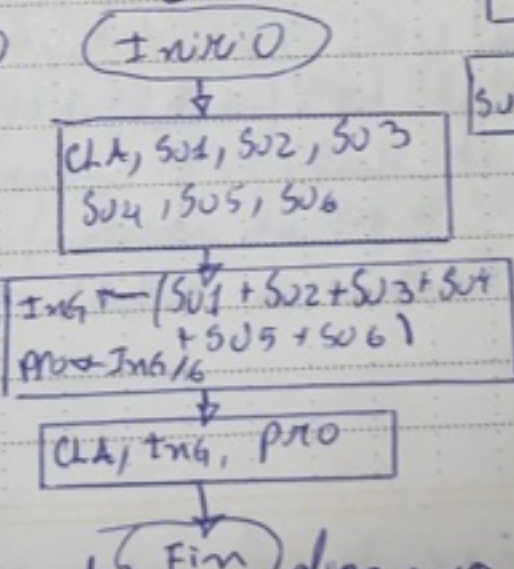 Inicio
CLA, SU1, SU2, SU3
SU4, SU5, SU6
SU
ING ← (SU1 + SU2 + SU3 + SU4
+ SU5 + SU6)
PRO ← ING/6
CLA, ING, PRO
Fin